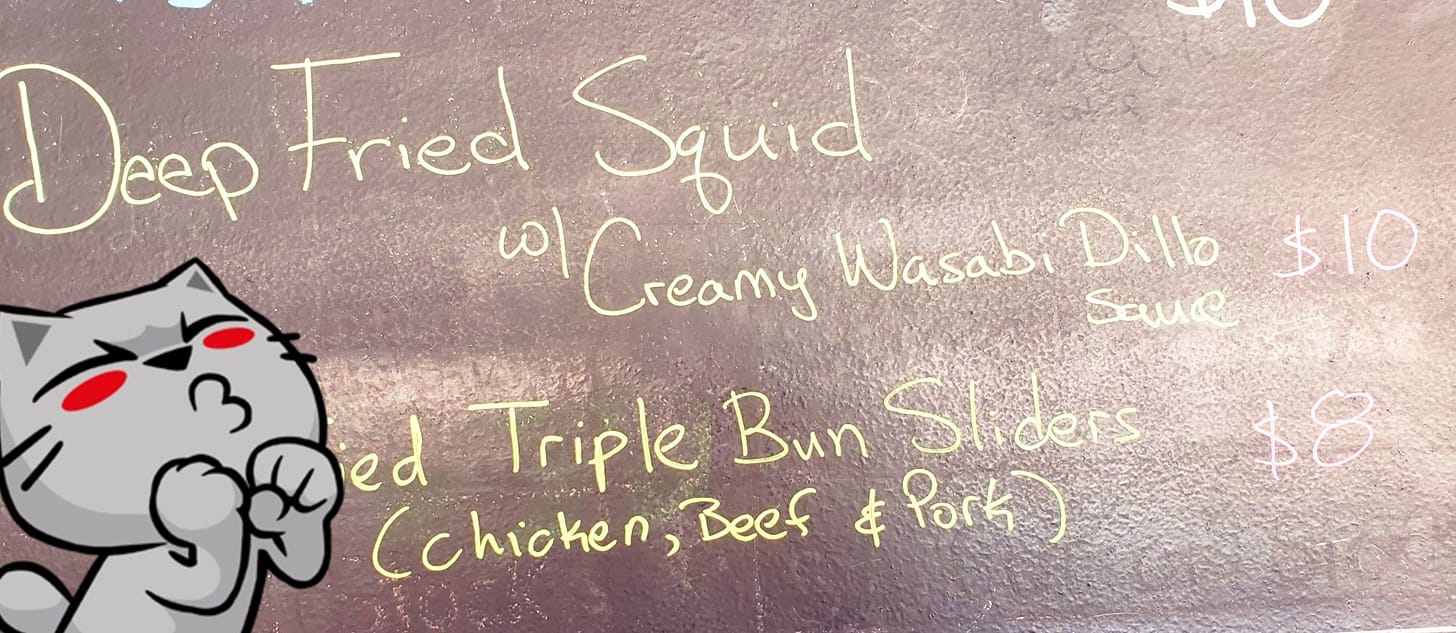 Deep Fried Squid
w/ Creamy Wasabi Dillo $10
Sauce
Triple Bun Sliders $8
(Chicken, Beef & Pork)